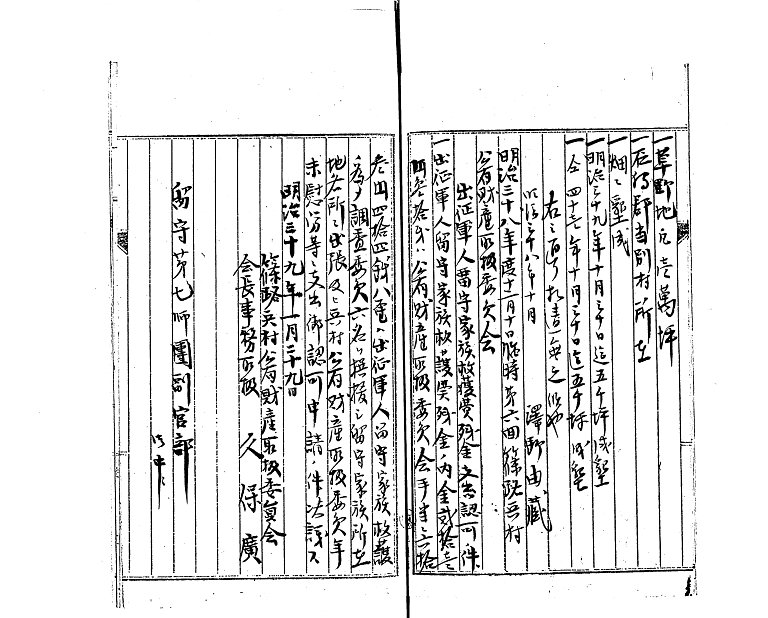 一草野地凡壱萬坪
一石狩郡当別村所在
一畑ニ墾成
一明治三十九年十月三十日迄五千坪成墾
一仝四十年十月三十日迄五千坪成墾
右之通相違無之候也
明治三十八年十月
澤野由藏
明治三十八年度十二月十日臨時第六回篠路兵村
公有財産取扱委員会
出征軍人留守家族救護費残金支出認可ノ件
一出征軍人留守家族救護費残金ノ内金貮拾壱
円参拾銭ハ公有財産取扱委員会手当ニ六拾
参円四拾四銭八厘ハ出征軍人留守家族救護
ノ為メ調査委員六名ヲ撰抜シ留守家族所在
地各所ニ出張及ヒ兵村公有財産取扱委員年
末慰労等ニ支出御認可申請ノ件
明治三十九年一月二十九日
篠路兵村公有財産取扱委員会
会長事務取扱 久保廣
留守第七師團副官部
御中